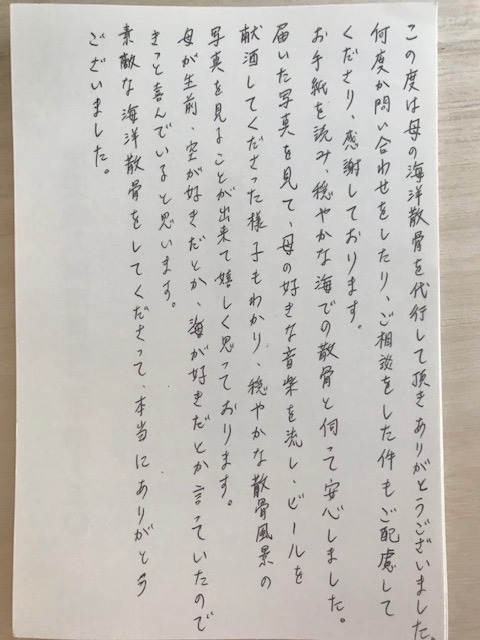 この度は母の海洋散骨を代行して頂きありがとうございました。
何度か問い合わせをしたり、ご相談をした件もご配慮して
くださり、感謝しております。
お手紙を読み、穏やかな海での散骨と伺って安心しました。
届いた写真を見て、母の好きな音楽を流し、ビールを
献酒してくださった様子もわかり、穏やかな散骨風景の
写真を見ることが出来て嬉しく思っております。
母が生前、空が好きだとか、海が好きだとか言っていたので
きっと喜んでいると思います。
素敵な海洋散骨をしてくださって、本当にありがとう
ございました。